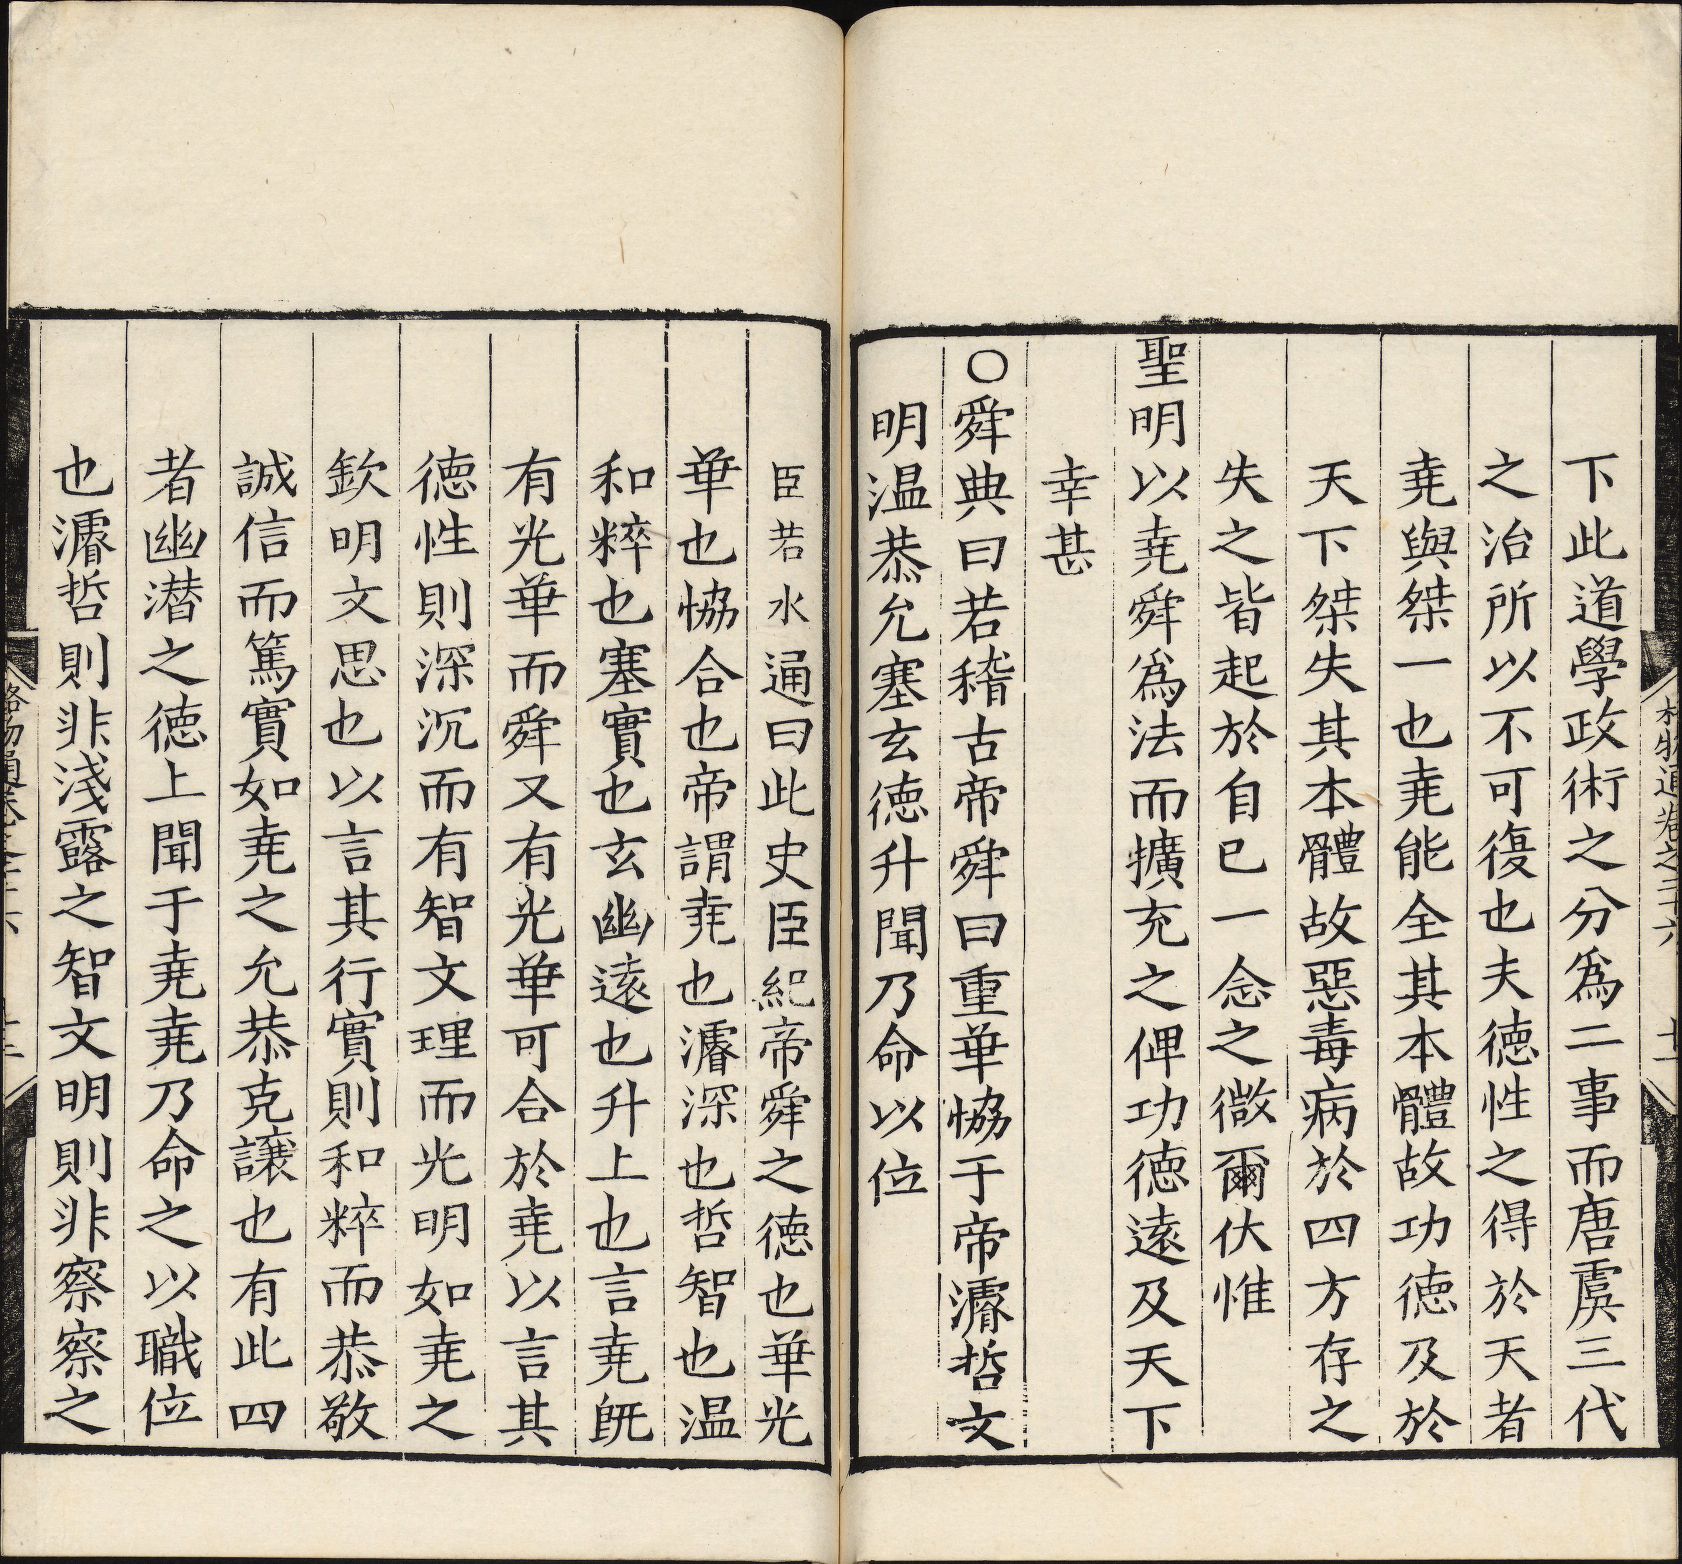 下此道學政術之分爲二事而唐虞三代
之治所以不可復也夫德性之得於天者
堯與桀一也堯能全其本體故功德及於
天下桀失其本體故惡毒病於四方存之
失之皆起於自已一念之微爾伏惟
聖明以堯舜爲法而擴充之俾功德遠及天下
幸甚
○舜典曰若稽古帝舜曰重華協于帝濬哲文
明温恭允塞玄德升聞乃命以位
臣若水通曰此史臣紀帝舜之德也華光
華也恊合也帝謂堯也濬深也哲智也温
和粹也塞實也玄幽遠也升上也言堯旣
有光華而舜又有光華可合於堯以言其
德性則深沉而有智文理而光明如堯之
欽明文思也以言其行實則和粹而恭敬
誠信而篤實如堯之允恭克讓也有此四
者幽潜之德上聞于堯堯乃命之以職位
也濬哲則非淺露之智文明則非察察之
格物通卷之二十六
十一